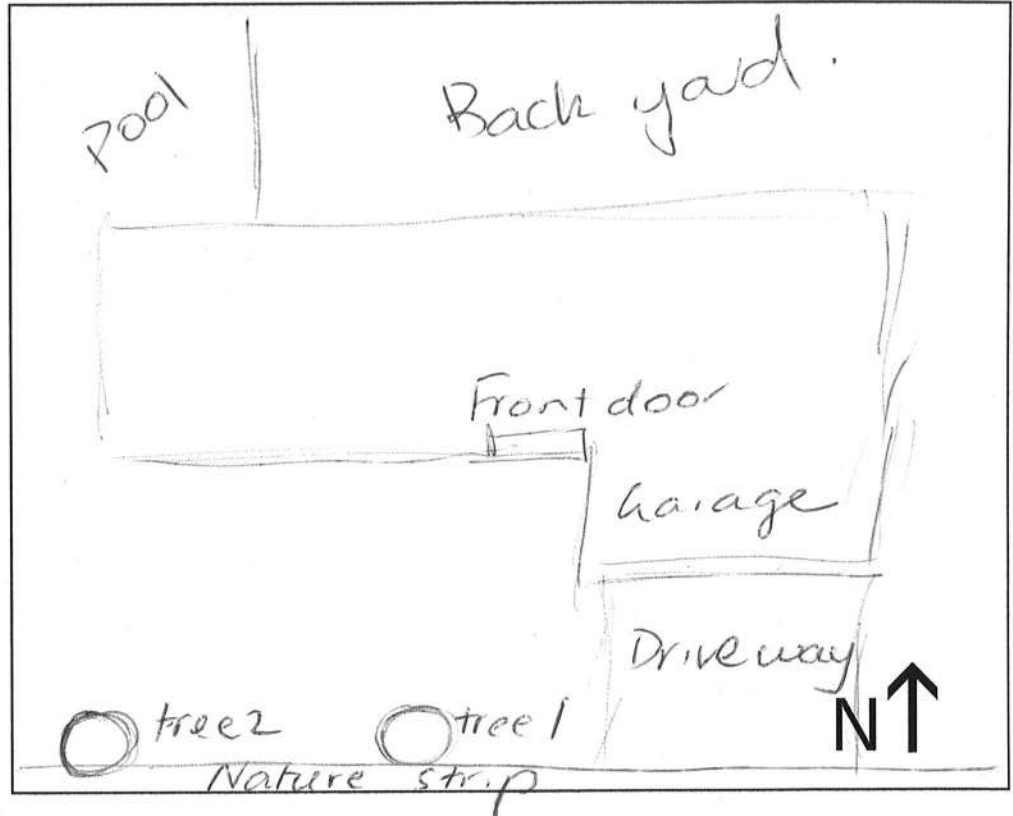 Pool
Back yard.
Front door
Garage
Driveway
N
tree 2
tree 1
Nature strip